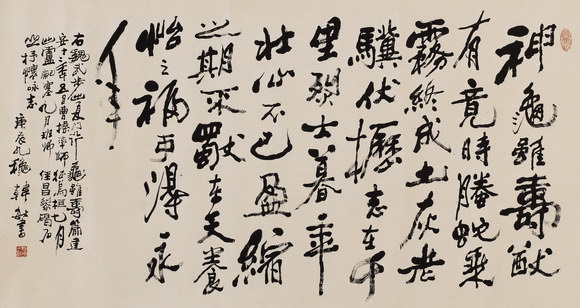 神龜雖壽猷
有竟時騰蛇乘
霧終成土灰老
驥伏櫪志在千
里烈士暮年
壯心不已盈縮
之期不獨在天養
怡之福可得永
年
右魏武步出夏門行龜雖壽篇建
安十二年五月曹操率師征烏桓七月
出盧龍塞九月班師經昌黎碣石
抒懷詠志 庚辰九穐 韓敏書